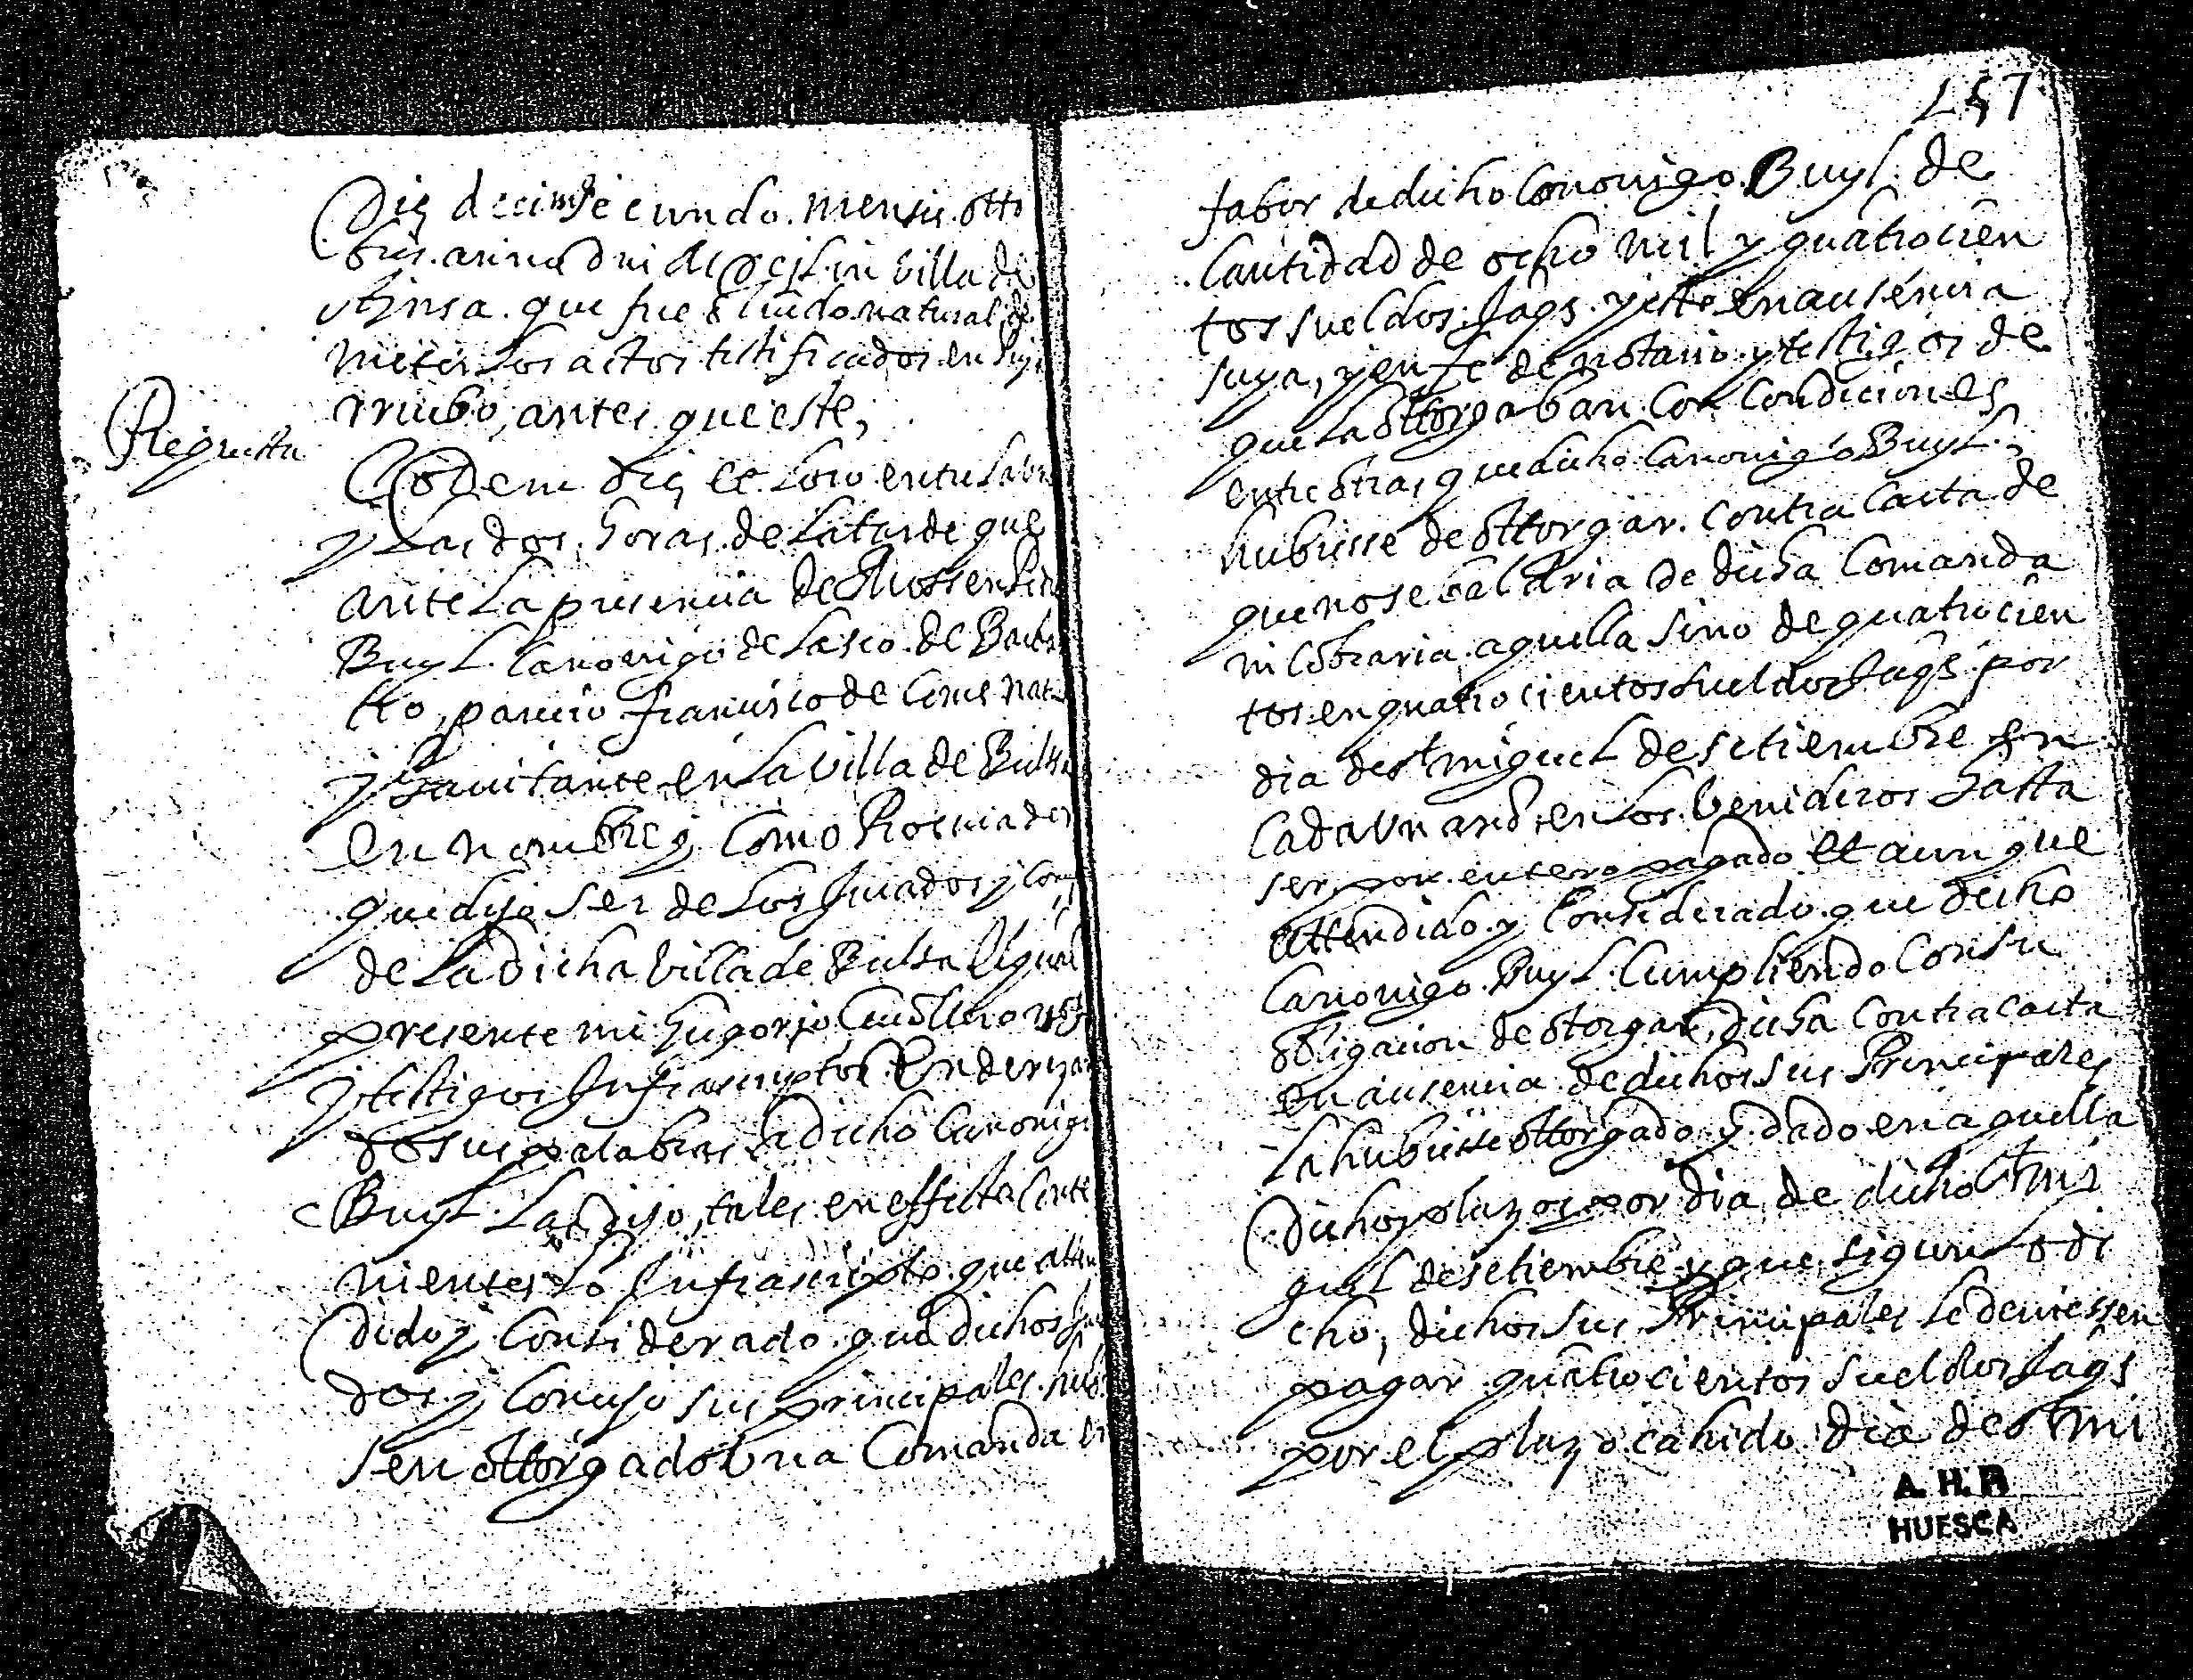 Die decimsecundo mensis otto
bris anno dni in villa de
Ainsa que fue oluido natural de
meter los actos testificados en
antes que este,
Requesta
Eodem die et loco entre la vna
y las dos horas de la tarde que
ante la presencia de Mossen
Buyl Canonigo de Lasco de
tro, parecio francisco de
y hauitante en la villa de Bielsa
en nombre y como Procurador
que dijo ser de los Jurados y con
de la dicha billa de Bielsa el qual
presente mi notº
y testigos Infrascriptos Enderezan
do sus palabras a dicho Canonigo
Buyl. Las dijo, tales en effecto conte
nientes lo Infrascripto que atten
dido y considerado que dichos Jura
dos y Consejo sus principales hubies
sen ottorgado vna Comanda en
257
fabor de dicho Canonigo Buyl de
Cantidad de ocho mil y quatrocien
tos sueldos Jaqs y esto en ausencia
suya, y en fe de notario y testigos de
que la ottorgaban con condiciones
entre otras que dicho Canonigo Buyl
hubiesse de ottorgar contra Carta de
que no se baldria de dicha Comanda
ni cobraria aquella sino de quatrocien
tos en quatrocientos sueldos Jaqs por
dia de st miguel de setiembre en
cada vn año en los benideros hasta
ser por entero pagado et aunque
attendido y Considerado que dicho
Canonigo Buyl Cumpliendo con su
obligacion de otorgar dicha Contra carta
en ausencia de dichos sus Principales
la hubiesse ottorgado y dado en aquella
dichos plazos por dia de dicho st mi
guel de setiembre y que segun lo di
cho, dichos sus Principales le deuiessen
pagar quatrocientos sueldos Jaqs
por el plazo cahido dia de st mi
A. H. P.
HUESCA